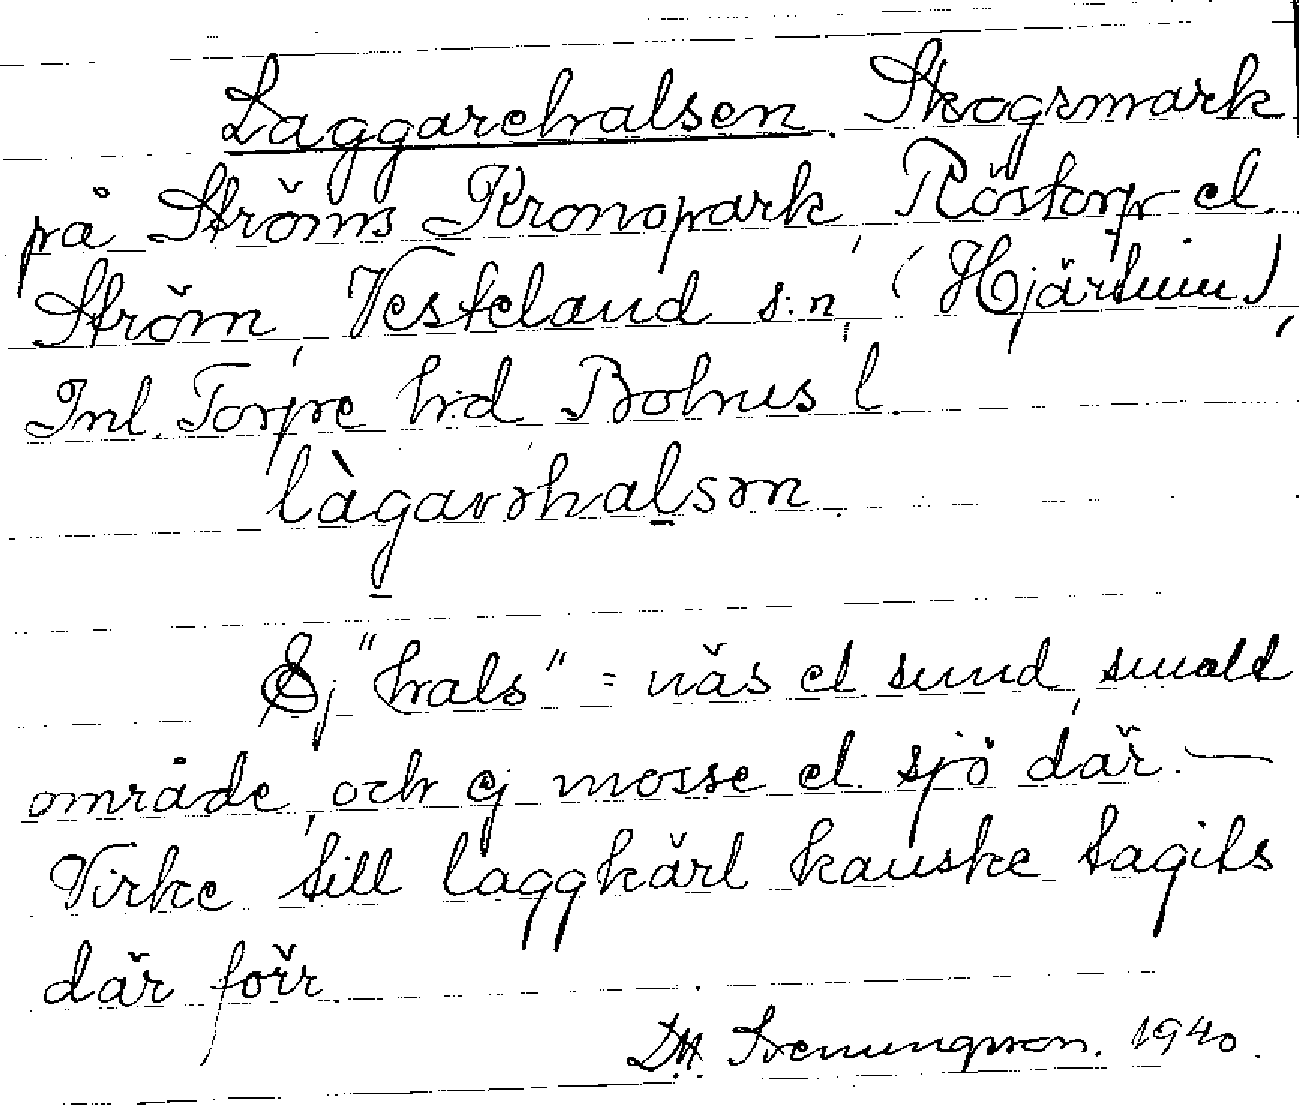 Laggarehalsen. Skogsmark
på Ströms Kronopark, Röstorp el.
Ström, Vesteland s:n, (Hjärtum),
Inl. Torpe hrd Bohus l.
làgarəhalsən.
Ej "hals" = näs el sund, smalt
område, och ej mosse el. sjö där. —
Virke till laggkärl kanske tagits
där förr
DH. Svenungsson. 1940.